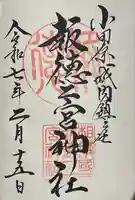 小田原城内鎮座
報徳二宮神社
令和七年二月十五日